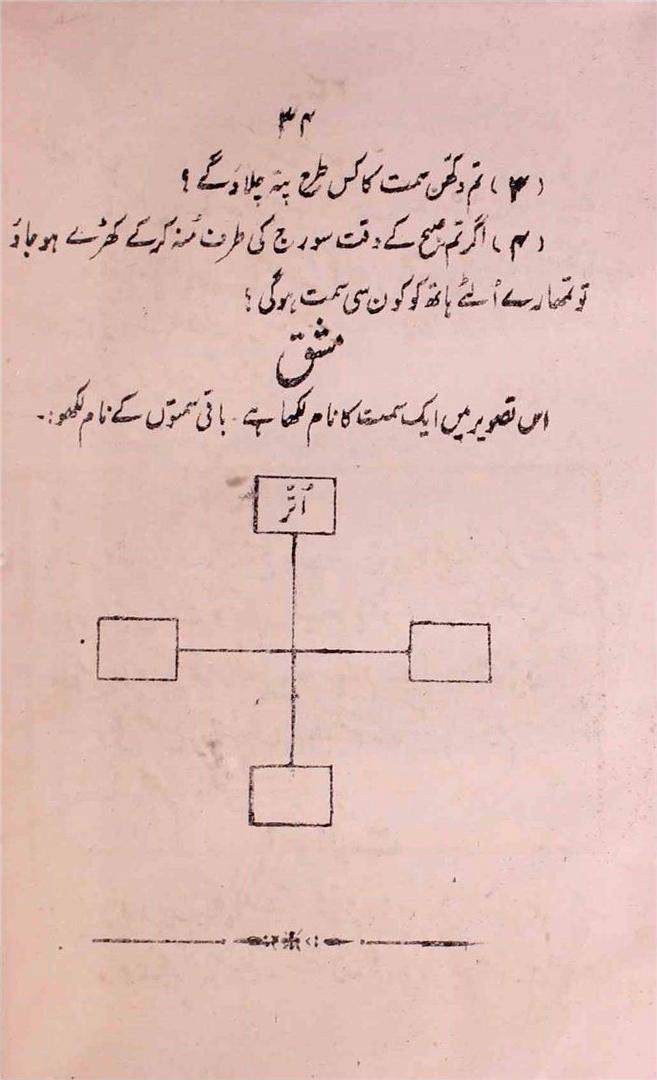 ۳۴
(۳) تم دکھن سمت کا کس طرح پتہ چلاؤ گے؟
(۴) اگر تم صبح کے وقت سورج کی طرف منہ کرکے کھڑے ہو جاؤ
تو تمھارے اُلٹے ہاتھ کو کون سی سمت ہوگی؟
مشق
اس تصویر میں ایک سمت کا نام لکھا ہے۔ باقی سمتوں کے نام لکھو:۔
اُتّر